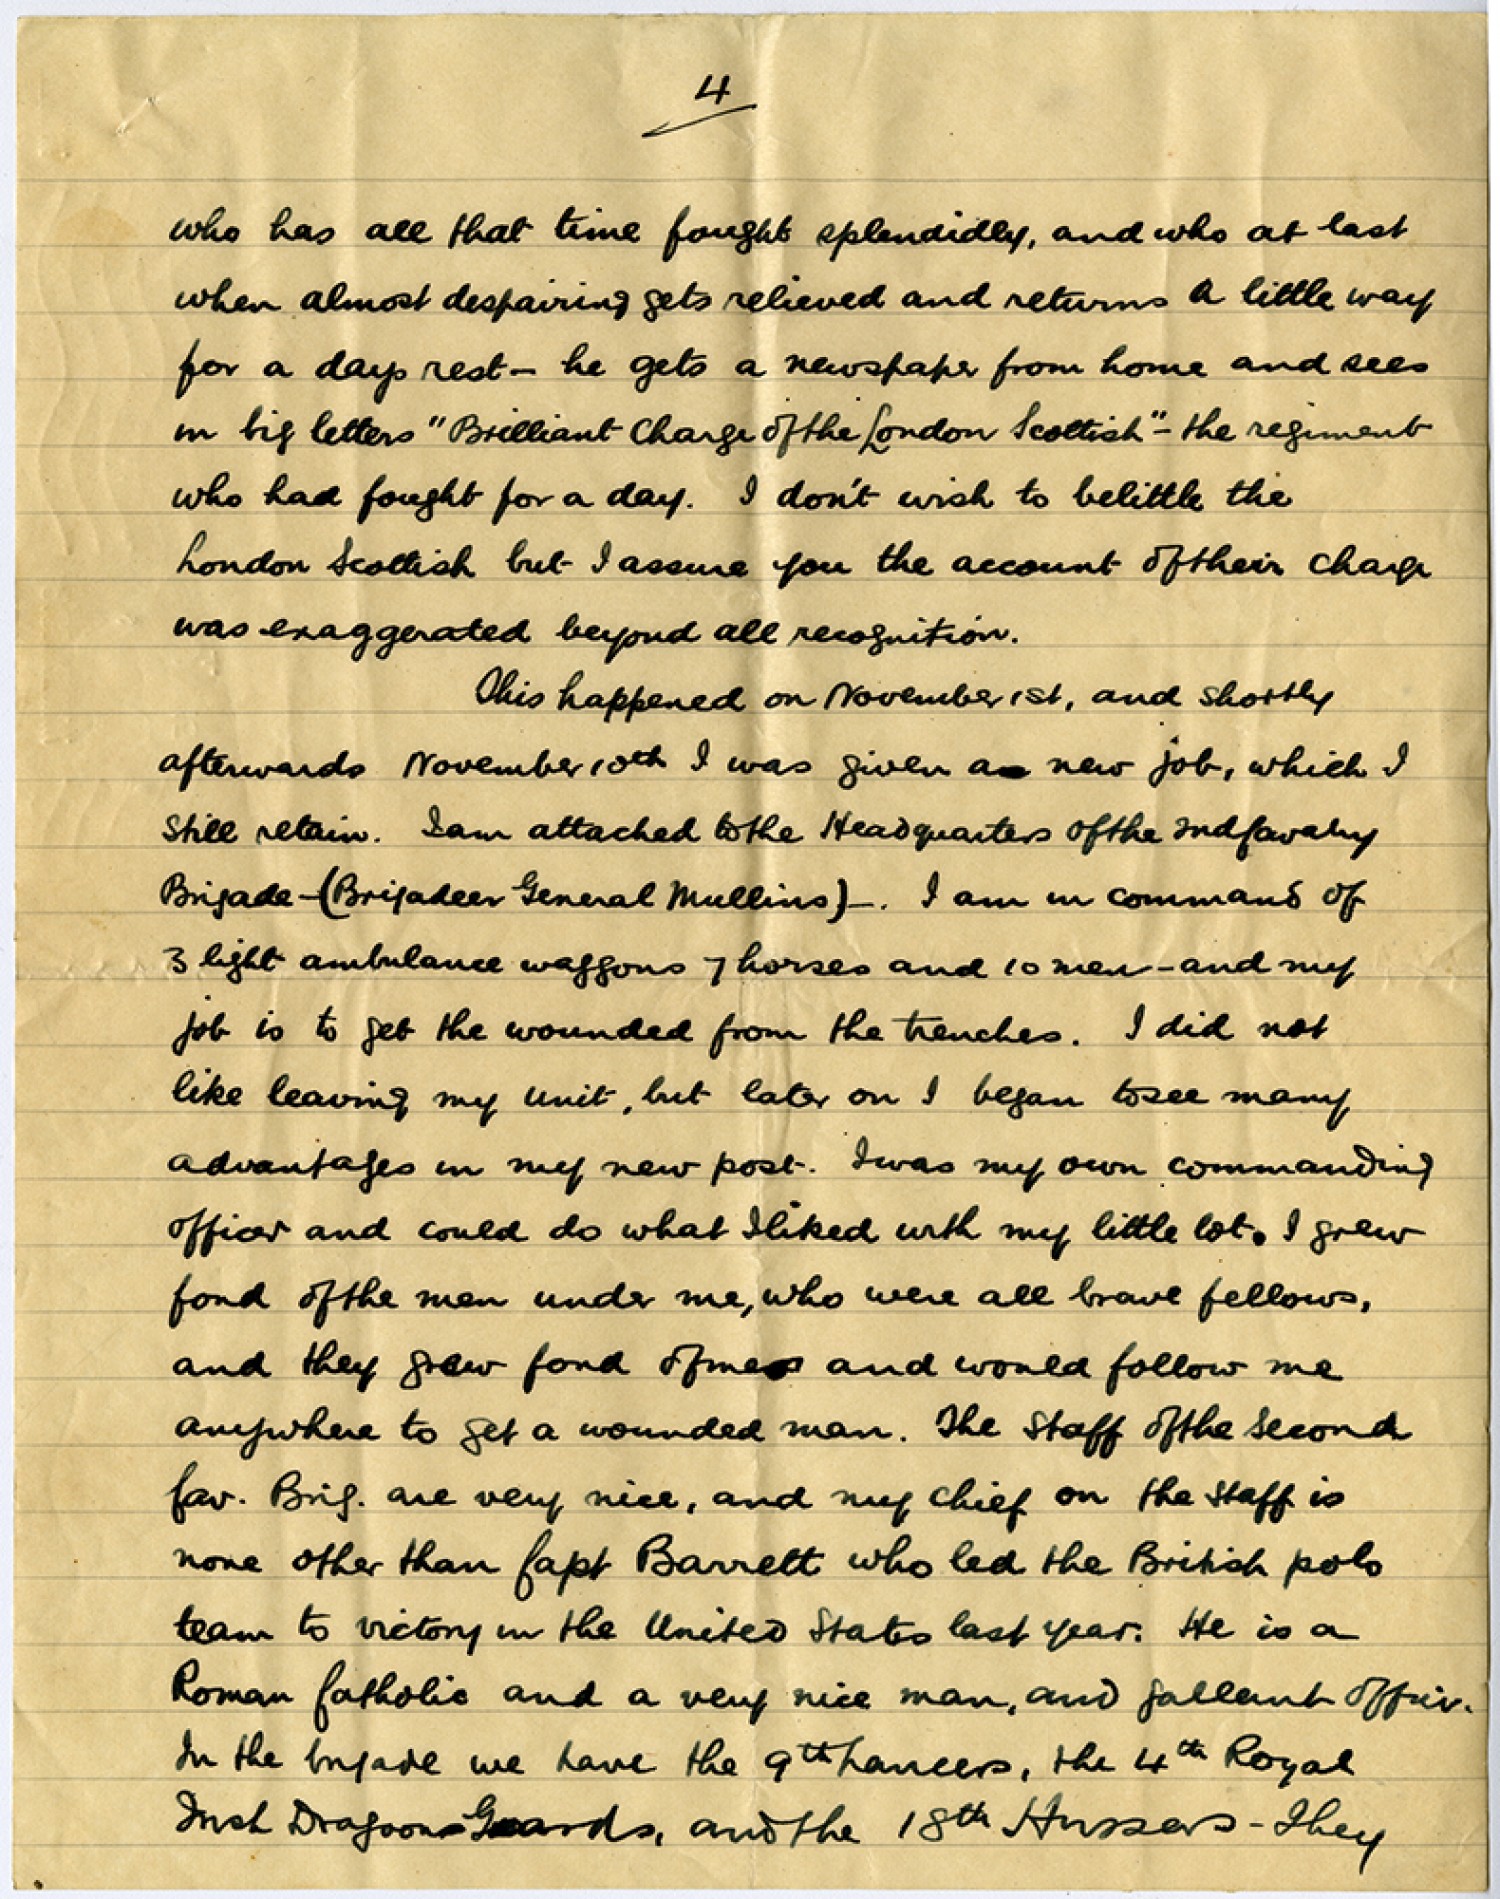 4
who has all that time fought splendidly, and who at last
when almost despairing gets relieved and returns a little way
for a days rest — he gets a newspaper from home and sees
in big letters "Brilliant Charge of the London Scottish" — the regiment
who had fought for a day. I don't wish to belittle the
London Scottish but I assure you the account of their charge
was exaggerated beyond all recognition.
This happened on November 1st, and shortly
afterwards November 10th I was given a new job, which I
still retain. I am attached to the Headquarters of the 2nd Cavalry
Brigade — (Brigadeer General Mullins) —. I am in command of
3 light ambulance waggons 7 horses and 10 men — and my
job is to get the wounded from the trenches. I did not
like leaving my unit, but later on I began to see many
advantages in my new post. I was my own commanding
officer and could do what I liked with my little lot. I grew
fond of the men under me, who were all brave fellows,
and they grew fond of me and would follow me
anywhere to get a wounded man. The Staff of the Second
Cav. Brig. are very nice, and my chief on the staff is
none other than Capt Barrett who led the British polo
team to victory in the United States last year. He is a
Roman Catholic and a very nice man, and gallant officer.
In the brigade we have the 9th Lancers, the 4th Royal
Irish Dragoons Guards, and the 18th Hussars — They